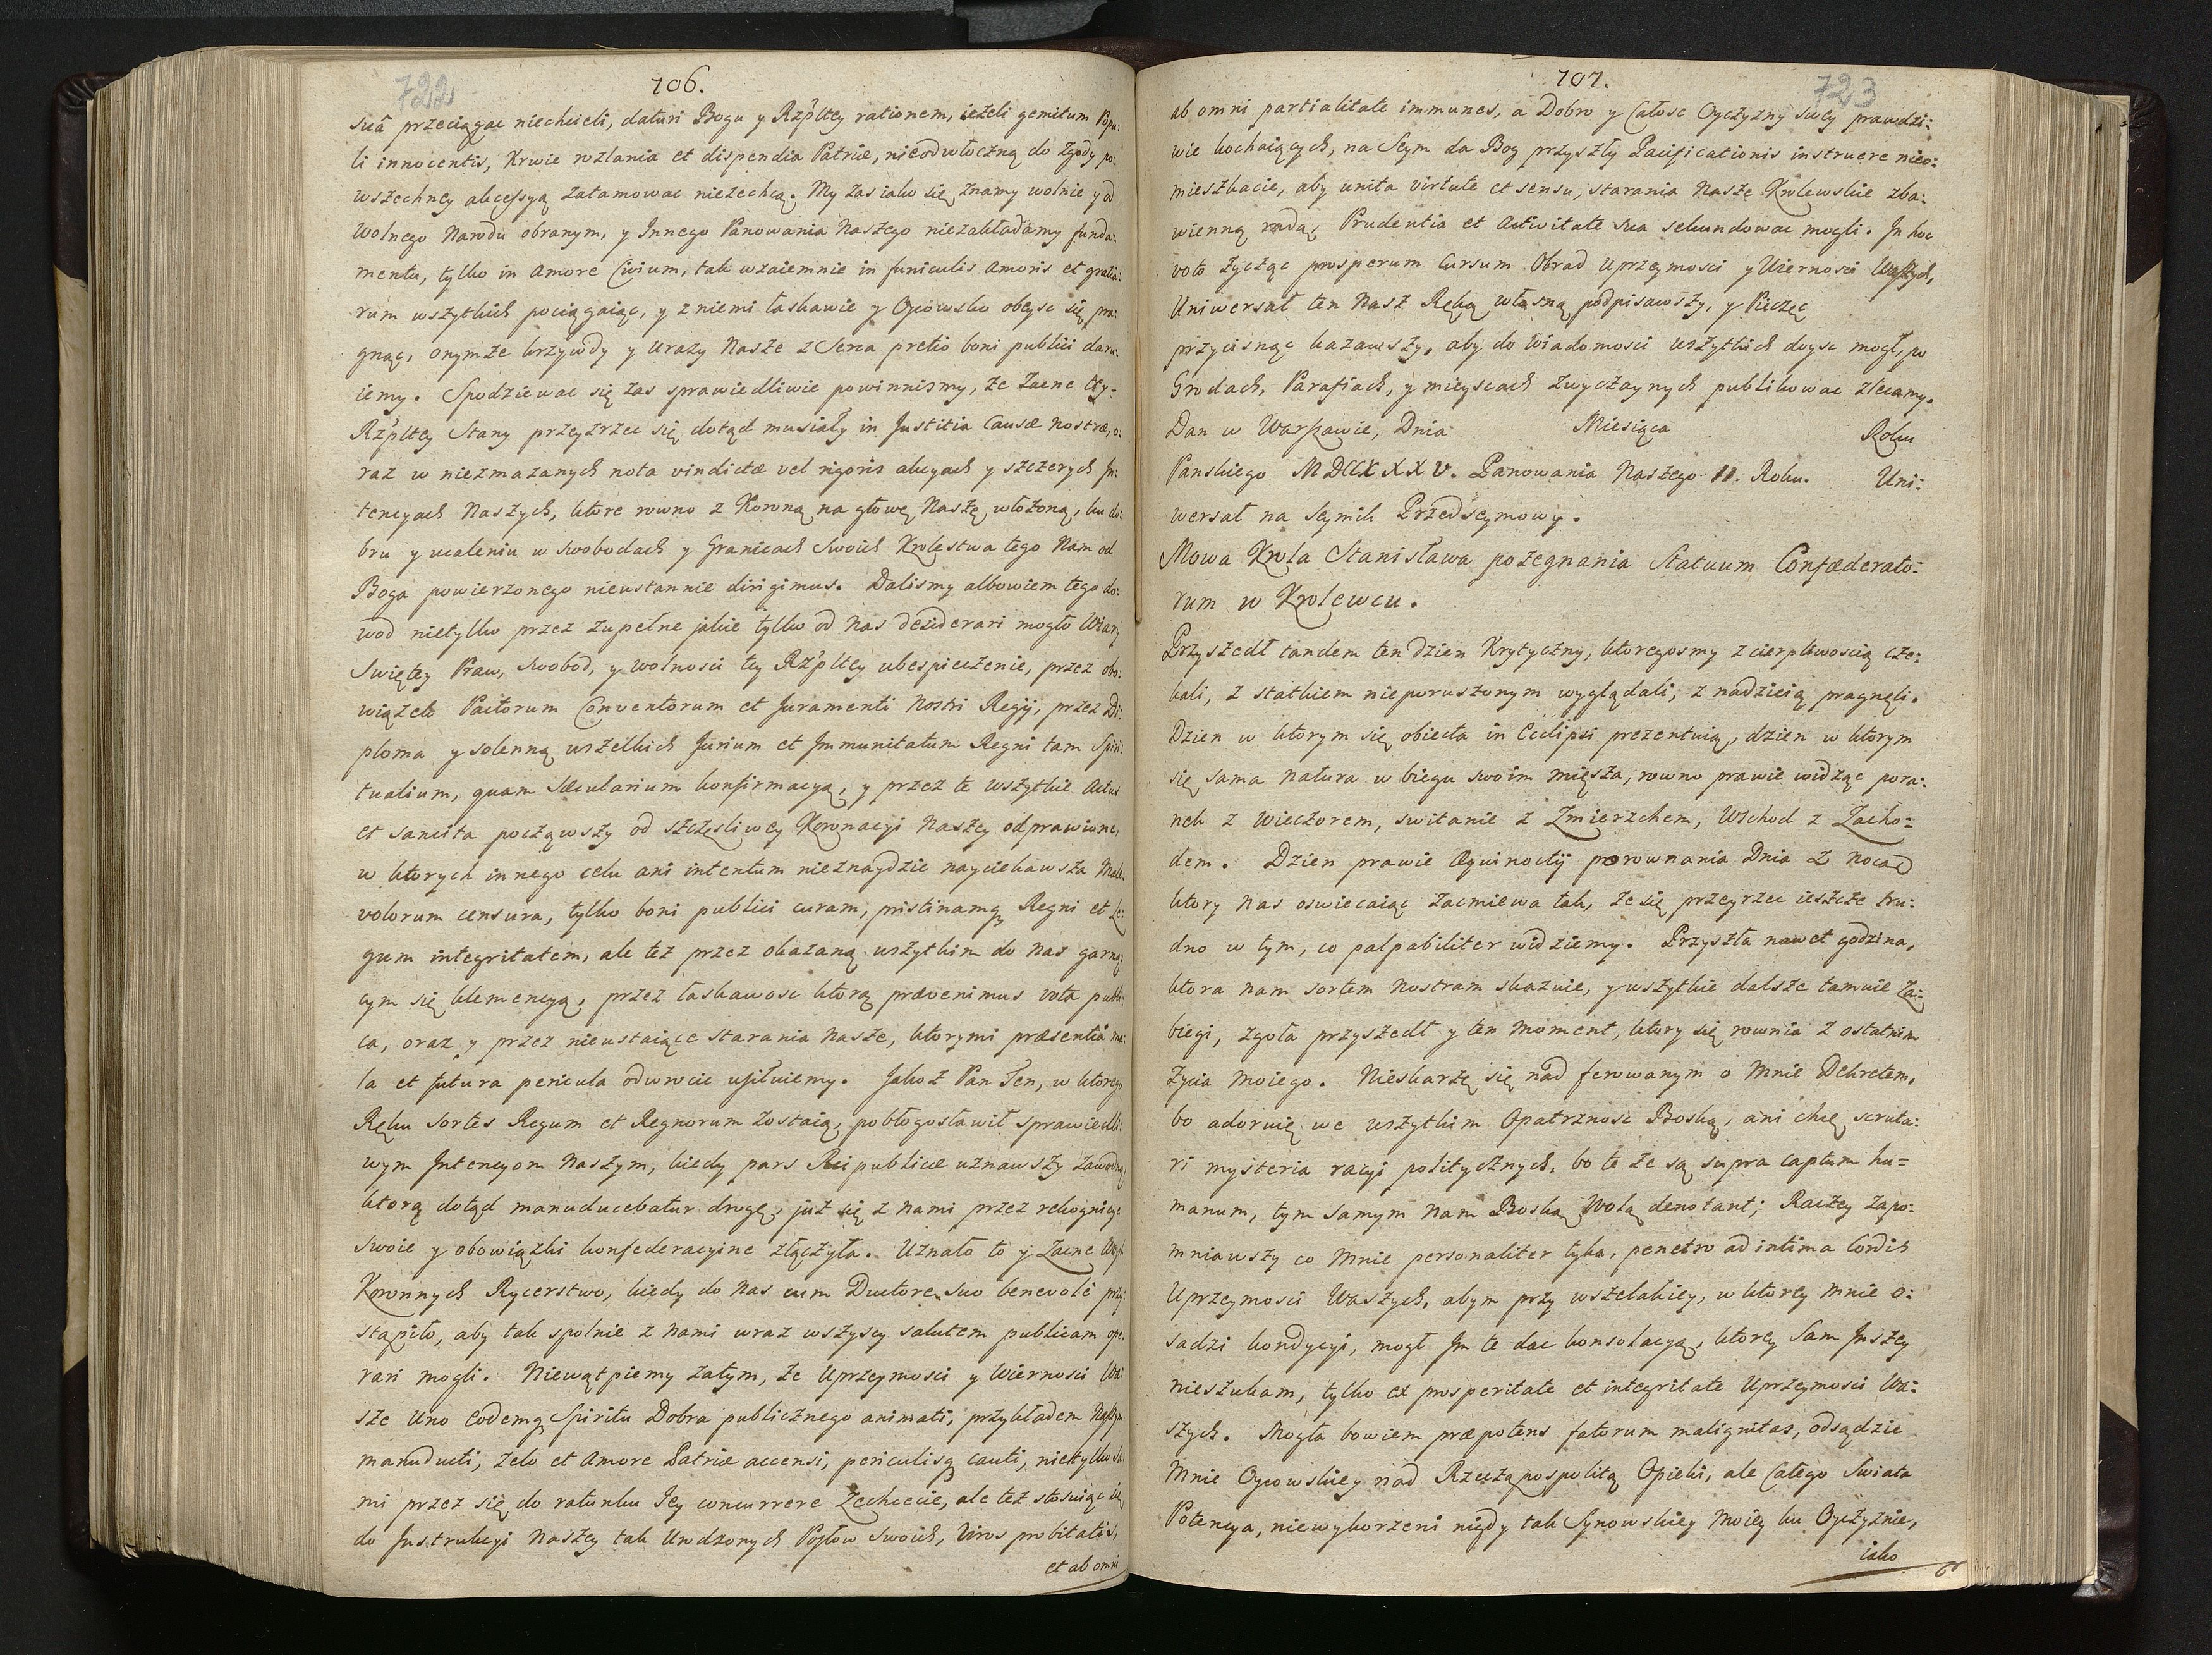 722
706.
suâ przeciągac niechcieli, daturi Bogu y Rzpltey rationem, ieżeli gemitum Popu:
li innocentis, Krwie rozlania et dispendia Patriæ, nieodwłoczną do Zgody po:
wszechney akcessyą zatamowac niezechcą. My zas iako się znamy wolnie y od
Wolnego Narodu obranym, y Innego Panowania Naszego niezakładamy funda:
mentu, tylko in Amore Civium, tak wzaiemnie in funiculis Amoris et gratia:
rum wszytkich pociągaiąc, y z niemi łaskawie y Oycowsko obeysc się pra:
gnąc, onymże krzywdy y urazy Nasze z Serca pretio boni publici daru:
iemy. Spodziewac się zas sprawiedliwie powinnismy, że Zacne tey:
Rzpltey Stany przeyzrzec się dotąd musiały in Justitia Causæ nostræ, o:
raz w niezmazanych nota vindictæ vel rigoris akcyach y szczerych In:
tencyach Naszych, ktore rowno z Koroną na głowę Naszą włożoną, ku do:
bru y ucaleniu w swobodach y Granicach Swoich Krolestwa tego Nam od
Boga powierzonego nieustannie dirigimus. Dalismy albowiem tego do:
wod nietylko przez zupełne jakie tylko od Nas desiderari mogło Wiary
Swiętey Praw, Swobod, y wolnosci tey Rzpltey ubespieczenie, przez obo:
wiązek Pactorum Conventorum et Juramenti Nostri Regij, przez Di:
ploma y solenną wszelkich Jurium et Immunitatum Regni tam Spiri:
tualium, quam Sæcularium konfirmacyą, y przez te wszytkie Actus
et sancita począwszy od szczęsliwey Koronacyi Naszey odprawione,
w ktorych innego celu ani intentum nieznaydzie nayciekawsza Male:
volorum censura, tylko boni publici curam, pristinamq Regni et Le:
gum integritatem, ale też przez okazaną wszytkim do Nas garną:
cym się klemencyą, przez łaskawosc ktorą prævenimus vota publi:
ca, oraz y przez nieustaiące starania Nasze, ktorymi præsentia ma:
la et futura pericula odwrocic usiłuiemy. Jakoż Pan Ten, w ktorego
Ręku sortes Regum et Regnorum zostaią, pobłogosławił sprawiedli:
wym Intencyom Naszym, kiedy pars Reipublicæ uznawszy zawodną
ktorą dotąd manuducebatur drogę, już się z nami przez rekognicye
swoie y obowiązki konfederacyine złączyła. Uznało to y Zacne Woysk
Koronnych Rycerstwo, kiedy do Nas cum Ductore suo benevolè przy:
stąpiło, aby tak spolnie z nami wraz wszyscy salutem publicam ope:
rari mogli. Niewątpiemy zatym, że Uprzeymosci y Wiernosci Wa:
sze Uno eodemq Spiritu Dobra publicznego animati, przykładem Naszym
manuducti, zelo et Amore Patriæ accensi, periculisq cauti, nietylko sa:
mi przez się do ratunku Jey concurrere Zechcecie, ale też stosuiąc się
do Instrukcyi Naszey tak Urodzonych Posłow Swoich, Viros probitatis,
et ab omni
707.
723
ab omni partialitate immunes, a Dobro y Całosc Oyczyzny swey prawdzi:
wie kochaiących, na Seym da Bog przyszły Pacificationis instruere nieo:
mieszkacie, aby unita virtute et sensu, starania Nasze Krolewskie zba:
wienną radą, Prudentia et Activitate sua sekundowac mogli. In hoc
voto życząc prosperum cursum Obrad Uprzeymosci y Wiernosci Waszych,
Uniwersał ten Nasz Ręką własną podpisawszy, y Pieczęc
przycisnąc kazawszy, aby do wiadomosci wszytkich doysc mogł, po
Grodach, Parafiach, y mieyscach zwyczaynych publikowac zlecamy.
Dan w Warszawie, Dnia Miesiąca Roku
Panskiego MDCCXXXV. Panowania Naszego II. Roku. Uni:
wersał na Seymik Przedseymowy.
Mowa Krola Stanisława pożegnania Statuum Confæderato:
rum w Krolewcu.
Przyszedł tandem ten dzien Krytyczny, ktoregosmy z cierpliwoscią cze:
kali, z statkiem nieporuszonym wyglądali, z nadzieią pragnęli.
Dzien w ktorym się obiecta in Eclipsi prezentuią, dzien w ktorym
się sama natura w biegu swoim mięsza, rowno prawie widząc pora:
nek z wieczorem, switanie z Zmierzchem, Wschod z Zacho:
dem. Dzien prawie Æquinoctij porownania Dnia z Nocą
ktory nas oswiecaiąc zacmiewa tak, że się przeyrzec ieszcze tru:
dno w tym, co palpabiliter widziemy. Przyszła nawet godzina,
ktora nam sortem nostram skazuie, y wszytkie dalsze tamuie Za:
biegi, zgoła przyszedł y ten moment, ktory się rownia z ostatnim
życia moiego. Nieskarżę się nad ferowanym o Mnie Dekretem,
bo adoruię we wszytkim Opatrznosc Boską, ani chcę scruta:
ri mysteria racyi politycznych, bo te że są supra captum hu:
manum, tym samym nam Boską Wolą denotant; Raczey zapo:
mniawszy co Mnie personaliter tyka, penetro ad intima Cordis
Uprzeymosci Waszych, abym przy wszelakiey, w ktorey mnie o:
sadzi kondycyi, mogł Im te dac konsolacyą, ktorey Sam Inszey
nieszukam, tylko ex prosperitate et integritate Uprzeymosci Wa:
szych. Mogła bowiem præpotens fatorum malignitas, odsądzic
Mnie Oycowskiey nad Rzecząpospolitą Opieki, ale Całego Swiata
Potencya, niewykorzeni nigdy tak Synowskiey Moiey ku Oyczyznie,
iako